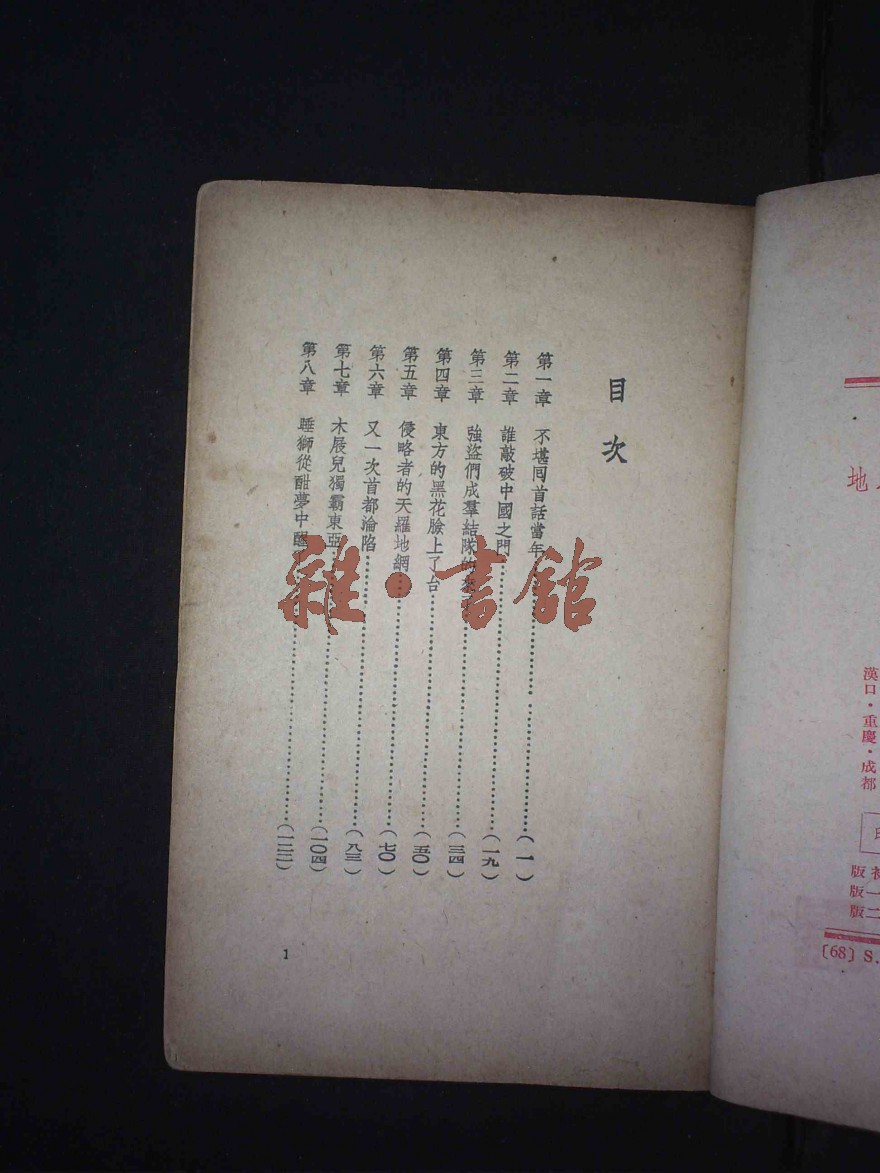 目次
第一章 不堪囘首話當年……(一)
第二章 誰敲破中國之門……(一九)
第三章 強盜們成羣結隊的來……(三四)
第四章 東方的黑花臉上了台……(五〇)
第五章 侵略者的天羅地網……(七〇)
第六章 又一次首都淪陷……(八三)
第七章 木屐兒獨霸東亞……(一〇四)
第八章 睡獅從酣夢中醒……
1
雜·書館
地
漢口·重慶·成都
印
版初
版一
版二
〔68〕S.